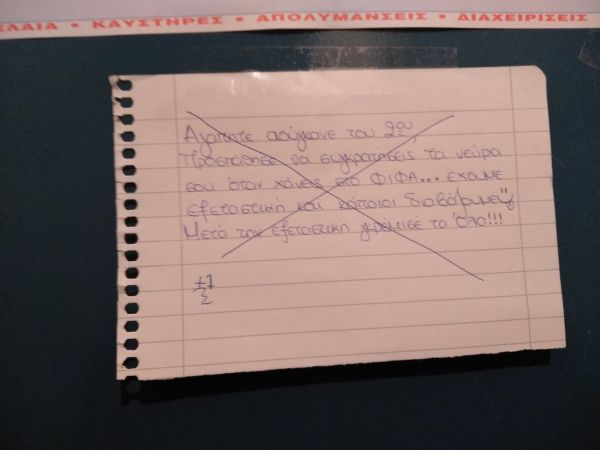 ΕΛΑΙΑ • ΚΑΥΣΤΗΡΕΣ • ΑΠΟΛΥΜΑΝΣΕΙΣ • ΔΙΑΧΕΙΡΙΣΕΙΣ
Αγαπητέ του 2ου,
Προσπάθησε να συγκρατήσεις τα νεύρα
σου όταν χάνεις στο ΦΙΦΑ... έχουμε
εξεταστική και κάποιοι διαβάζουμε
Μετά την εξεταστική γκρέμισέ το όλο!!!
+1
Σ